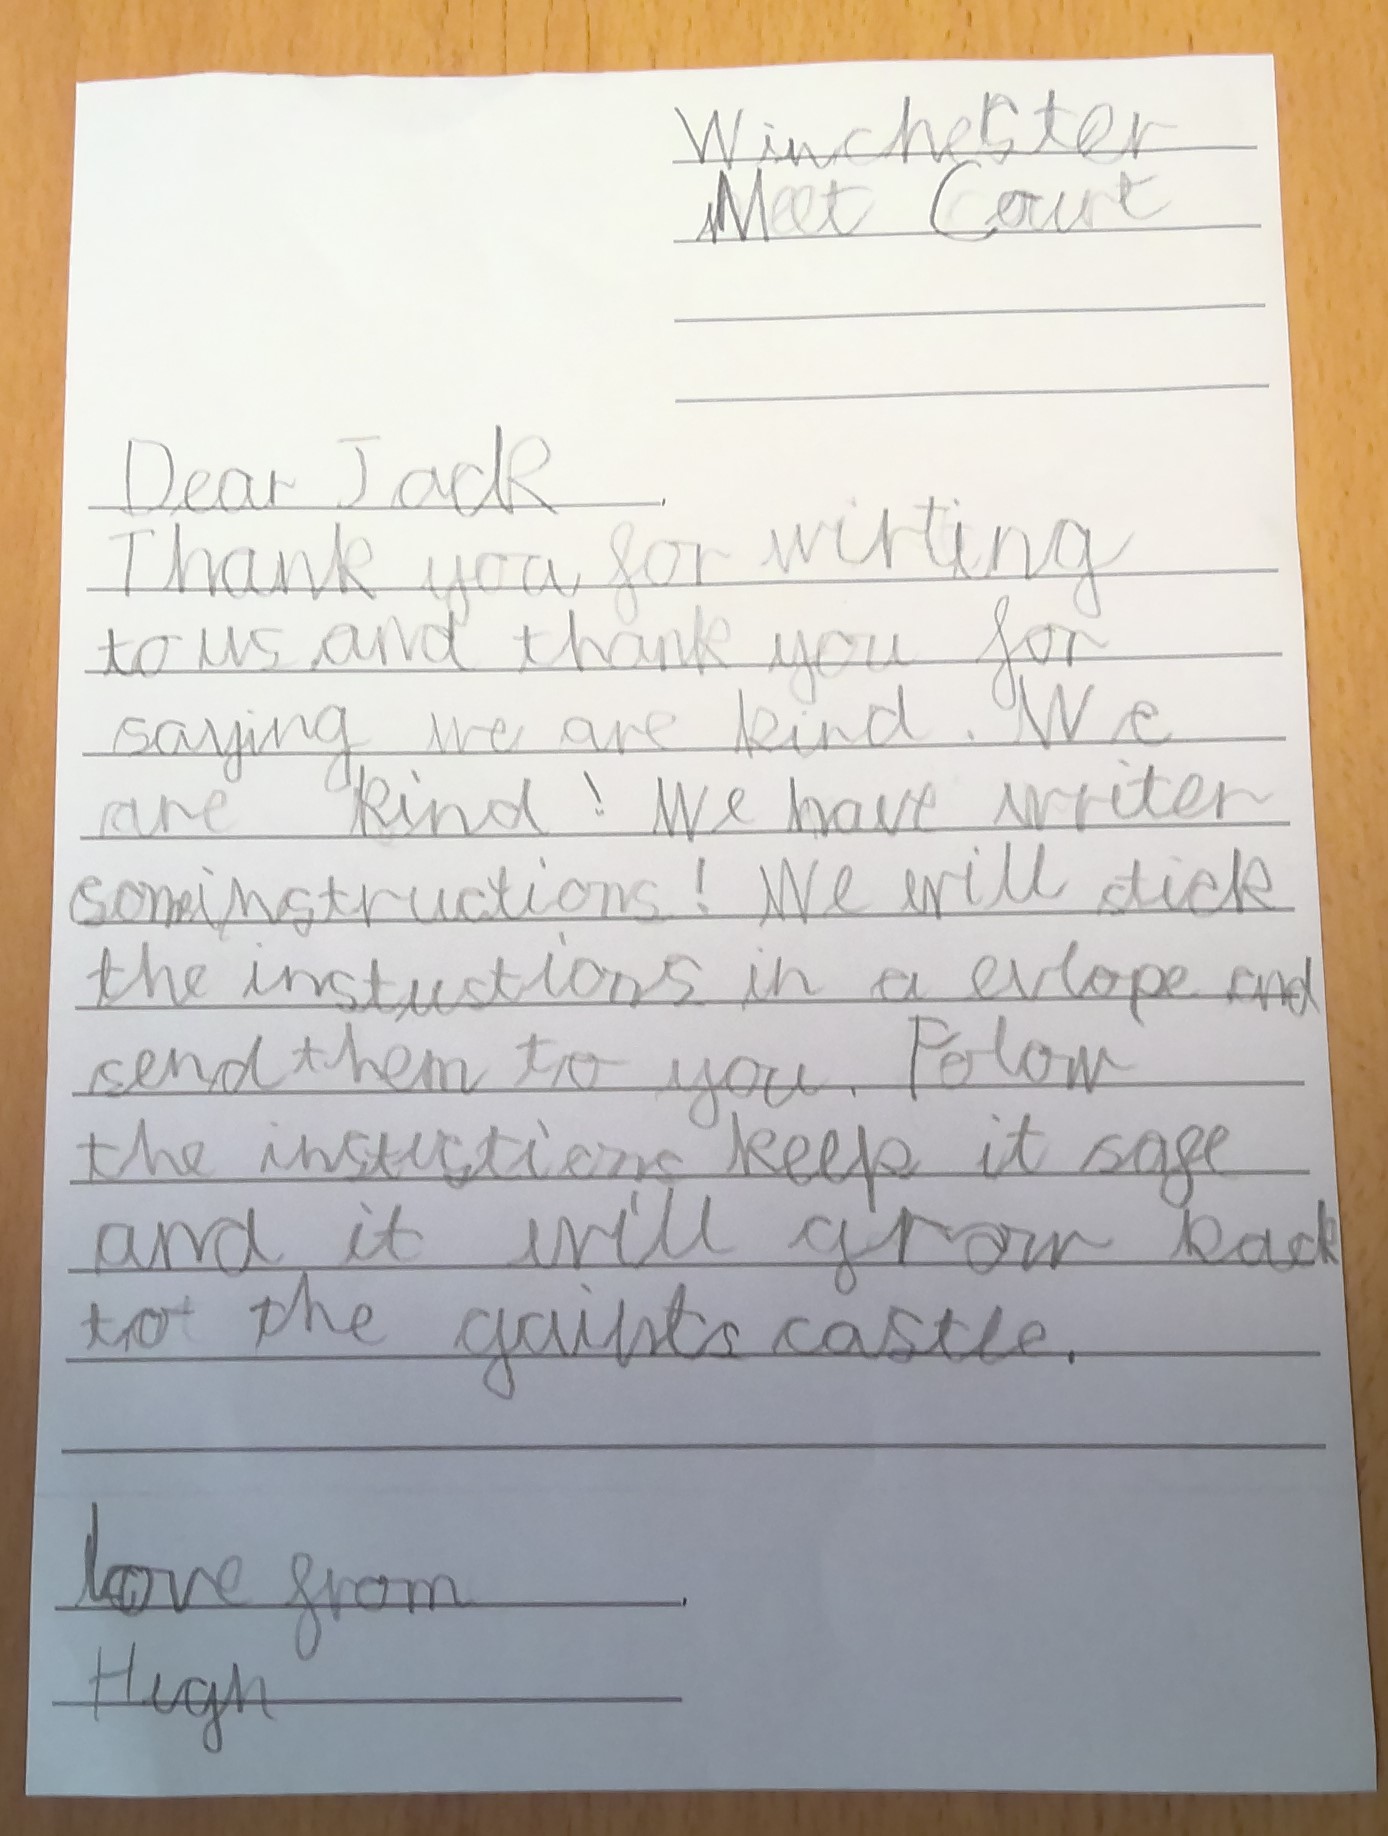 Winchester
Meet Court
Dear Jack
Thank you for wirting
to us and thank you for
saying we are kind. We
are kind! We have writer
someinstructions! We will stick
the instuctions in a evlope and
send them to you. Folow
the instuctions keep it safe
and it will grow back
to the gaints castle.
love from
Hugh